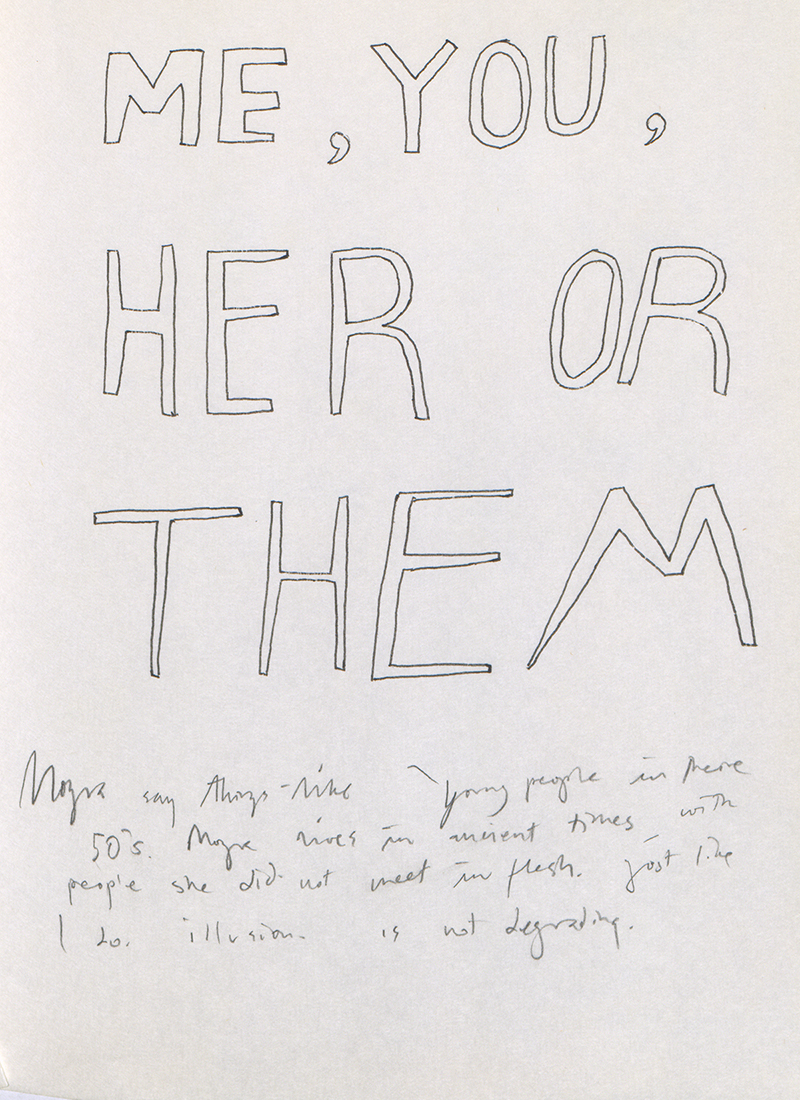 ME, YOU,
HER OR
THEM
Moyra say things like "young people in there
50's. Moyra lives in ancient times with
people she did not meet in flesh. just like
I do. illusion. is not degrading.